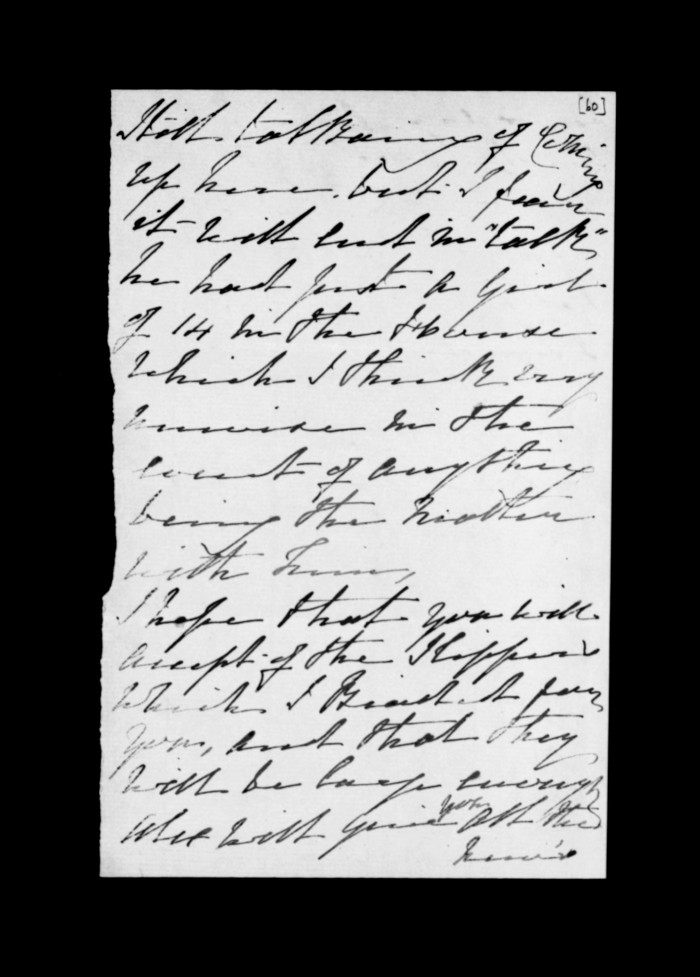 [60]
Still talking of Coming
up here. but I fear
it will end in "talk"
he had just a Girl
of 14 in the House
which I think very
unwise in the
event of anything
being the matter
with him,
I hope that you will
accept of the Slippers
which I for
you, and that they
will be large enough
Alex will give you all the
news